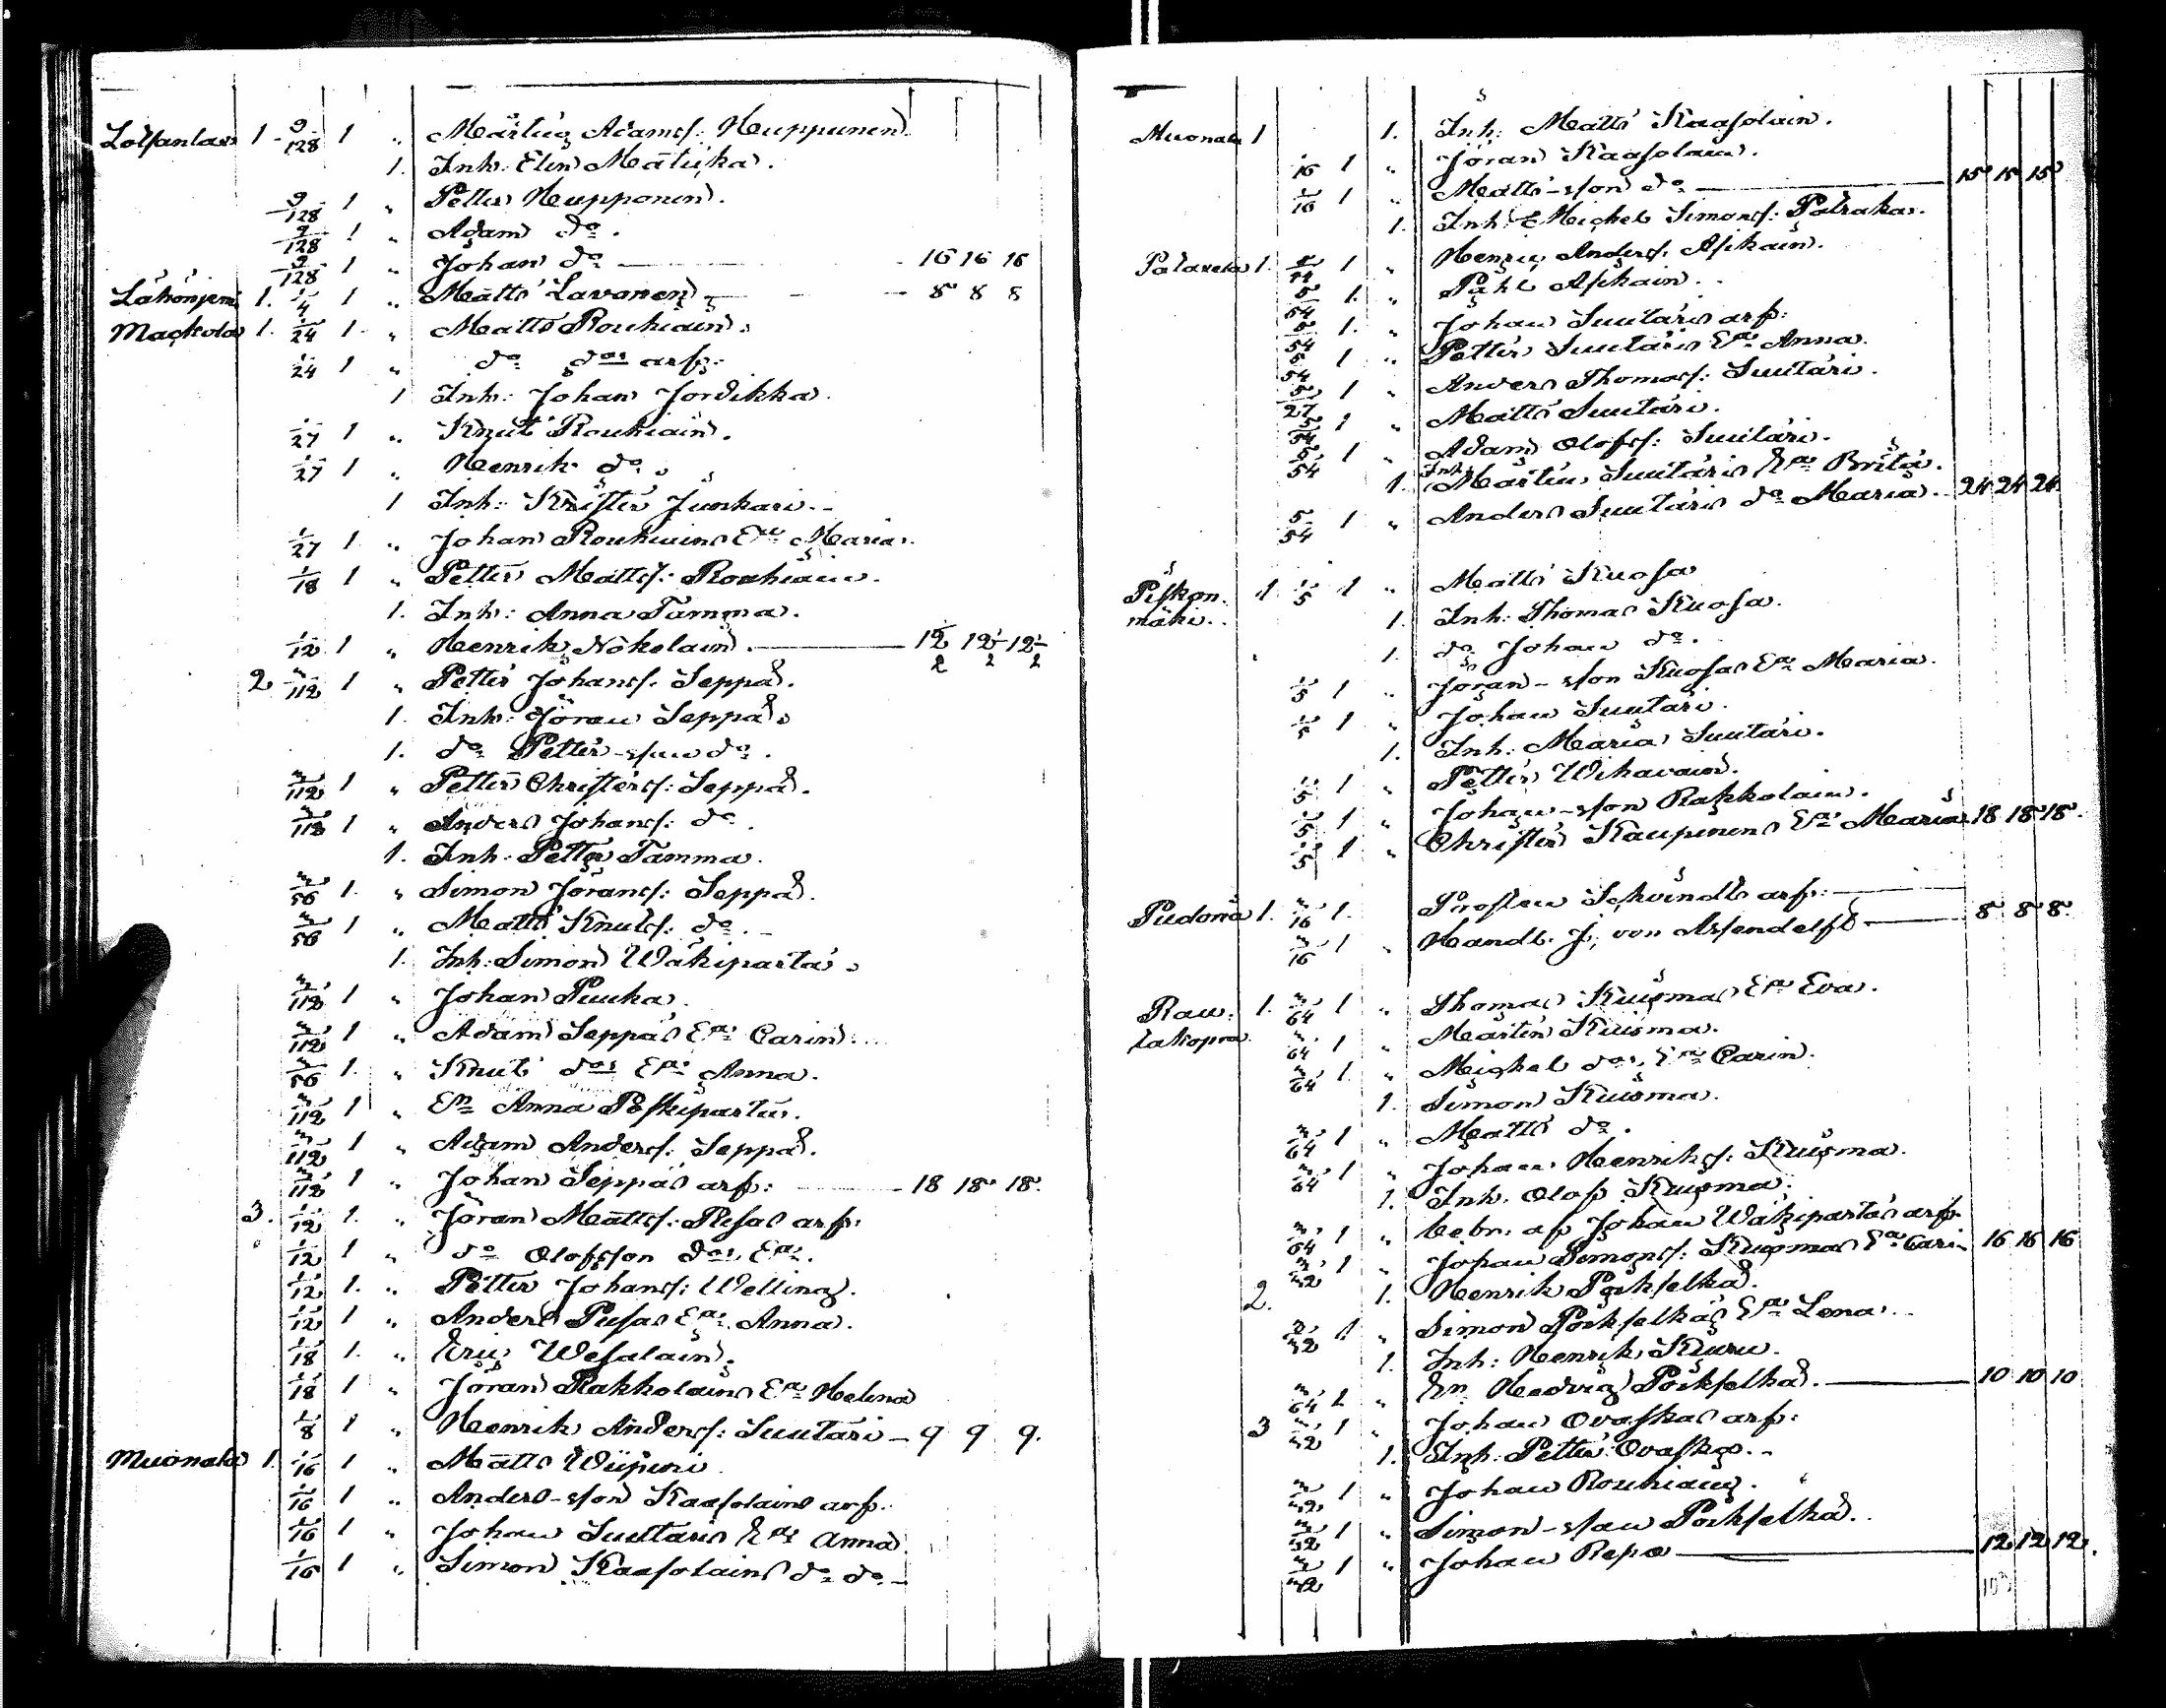 Lolfanlax 1 9/128 1 " Mårten Adamsf: Heupponen.
1. Inh: Elin Mätikä.
9/128 1 " Petter Heupponen.
9/128 1 " Adam do.
9/128 1 " Johan do — 16 16 16
1. 1/4 1 " Matts Lavonen — 8 8 8
Mackola 1. 1/24 1 " Matts Rouhiain.
1/24 1 " do dos arf:
1 Inh: Johan Jordikka.
1/27 1 " Knut Rouhiain.
1/27 1 " Henrik do.
1 Inh: Krister Junkari.
1/27 1 " Johan Rouhiains Ea Maria.
1/18 1 " Petter Mattsf: Rouhiain.
1. Inh: Anna Tamma.
1/12 1 " Henrik Nokolain. — 12 1/2 12 1/2 12 1/2
2 3/112 1 " Petter Johansf: Seppä.
1. Inh: Jöran Seppä.
1. do Petter -ssou do.
3/112 1 " Petter Christersf: Seppä.
3/112 1 " Anders Johansf: do.
1. Inh: Petter Tamma.
3/56 1. " Simon Jöransf: Seppä.
3/56 1 " Matts Knutsf: do.
1. Inh: Simon Wäkipartä.
3/112 1 " Johan Puuka.
3/112 1 " Adam Seppäs Ea Carin.
3/56 1. " Knut dos Ea Anna.
3/112 1 " En Anna
3/112 1 " Adam Andersf: Seppä.
3/112 1 " Johan Seppäs arf: — 18 18 18.
3. 1/12 1. " Jöran Mattsf: Pusas arf:
1/12 1 " do Olofsson dos Ea.
1/12 1. " Petter Johansf: Welling.
1/12 1 " Anders Pusas Ea Anna.
1/18 1. " Eric Wesalain.
1/18 1 " Jöran Rakkolains Ea Helena
1/8 1 " Henrik Andersf: Suutari — 9 9 9.
Muonala 1. 1/16 1 " Matts Wiipuri
1/16 1 " Anders -sson Kaasolains arf.
1/16 1 " Johan Suutaris Ea Anna
1/16 1 " Simon Kaasolains do do.
Muonala 1 1. Inh: Matts Kaasolain.
1/16 1 " Jöran Kaasolain.
1/16 1 " Matts -sson do — 15 15 15
1. Inh: Michel Simonsf: Patraka.
Palaxela 1. 1 " Henric Andersf: Asikain.
5/54 1. " Påhl Asikain.
5/54 1. " Johan Suutaris arf:
5/54 1 " Petter Suutaris Ea Anna.
5/27 1 " Anders Thomasf: Suutari.
5/54 1 " Matts Suutari.
5/54 1 " Adam Olofsf: Suutari.
1. Inh: Mårten Suutaris Ea Brita.
5/54 1 " Anders Suutaris do Maria. 24 24 24
Piskon- 1 1/5 1 " Matts Kuosa
mäki. 1. Inh: Thomas Kuosa.
1. do Johan do.
1/5 1 " Jöran -sson Kuosas Ea Maria.
1/5 1 " Johan Suutari.
1. Inh: Maria Suutari.
1/5 1 " Petter Wihavain.
1/5 1 " Johan -sson Rakkolain.
1/5 1 " Christer Kaupinens Ea Maria 18 18 18.
Pudona 1. 3/16 1. Schvindts arf: —
3/16 1 " Handl. J. von Assendelft — 8 8 8.
Rau- 1. 3/64 1 " Thomas Kuismas Ea Eva.
3/64 1 " Mårten Kuisma.
3/64 1. " Michel dos. Ea Carin.
1. Simon Kuisma.
3/64 1 " Matts do.
3/64 1 " Johan Henriksf: Kuisma.
1. Inh: Olof Kuisma.
3/64 1 " Johan Wäkipartäs arf.
3/32 1 " Johan Simonsf: Kuismas Ea Cari 16 16 16
2. 1. Henrik Pöikselkä.
3/32 1 " Simon Pöikselkäs Ea Lena.
1. Inh: Henrik Kuuru.
3/64 1 " En Hedvig Pöikselkä. — 10 10 10
3 3/32 1 " Johan Ovaskas arf:
1. Inh: Petter Ovaska.
3/32 1 " Johan Rouhiain.
3/32 1 " Simon -ssou Pöikselkä.
3/32 1 " Johan Repo — 12 12 12.